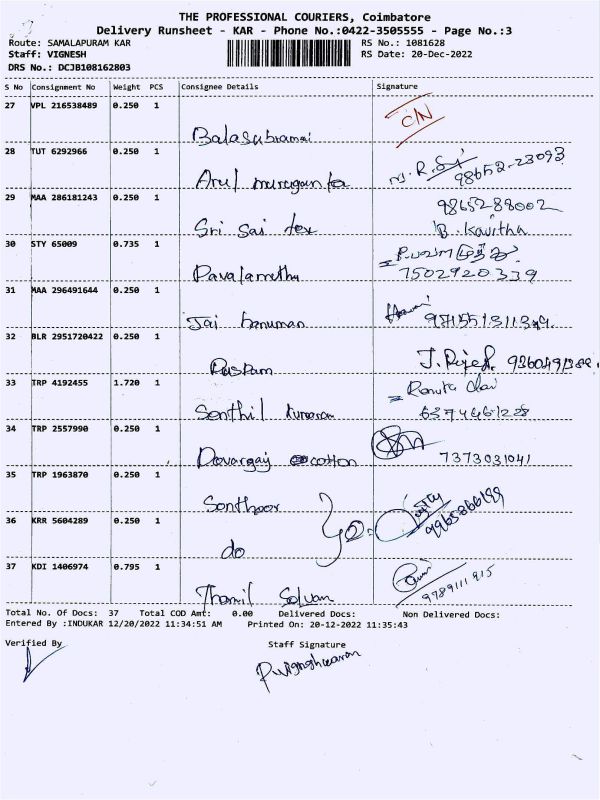 THE PROFESSIONAL COURIERS, Coimbatore
Delivery Runsheet - KAR - Phone No.:0422-3505555 - Page No.:3
Route: SAMALAPURAM KAR RS No.: 1081628
Staff: VIGNESH RS Date: 20-Dec-2022
DRS No.: DCJB108162803
S No Consignment No Weight PCS Consignee Details Signature
27 VPL 216538489 0.250 1 CN
28 TUT 6292966 0.250 1
Arul 98652-23093
29 MAA 286181243 0.250 1 9865288002
Sri Sai tex B. Kavitha
30 STY 65009 0.735 1
7502920339
31 MAA 296491644 0.250 1
Jai hanuman
32 BLR 2951720422 0.250 1
33 TRP 4192455 1.720 1
Senthil
34 TRP 2557990 0.250 1
cotton 7373031041
35 TRP 1963870 0.250 1
36 KRR 5604289 0.250 1
do
37 KDI 1406974 0.795 1
Thamil Selvan 9789111915
Total No. Of Docs: 37 Total COD Amt: 0.00 Delivered Docs: Non Delivered Docs:
Entered By :INDUKAR 12/20/2022 11:34:51 AM Printed On: 20-12-2022 11:35:43
Verified By Staff Signature